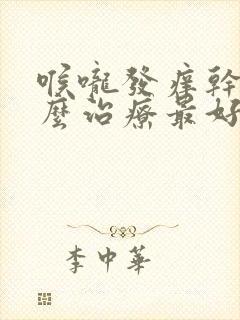 喉嚨發痒幹
麼治療最好
李中華